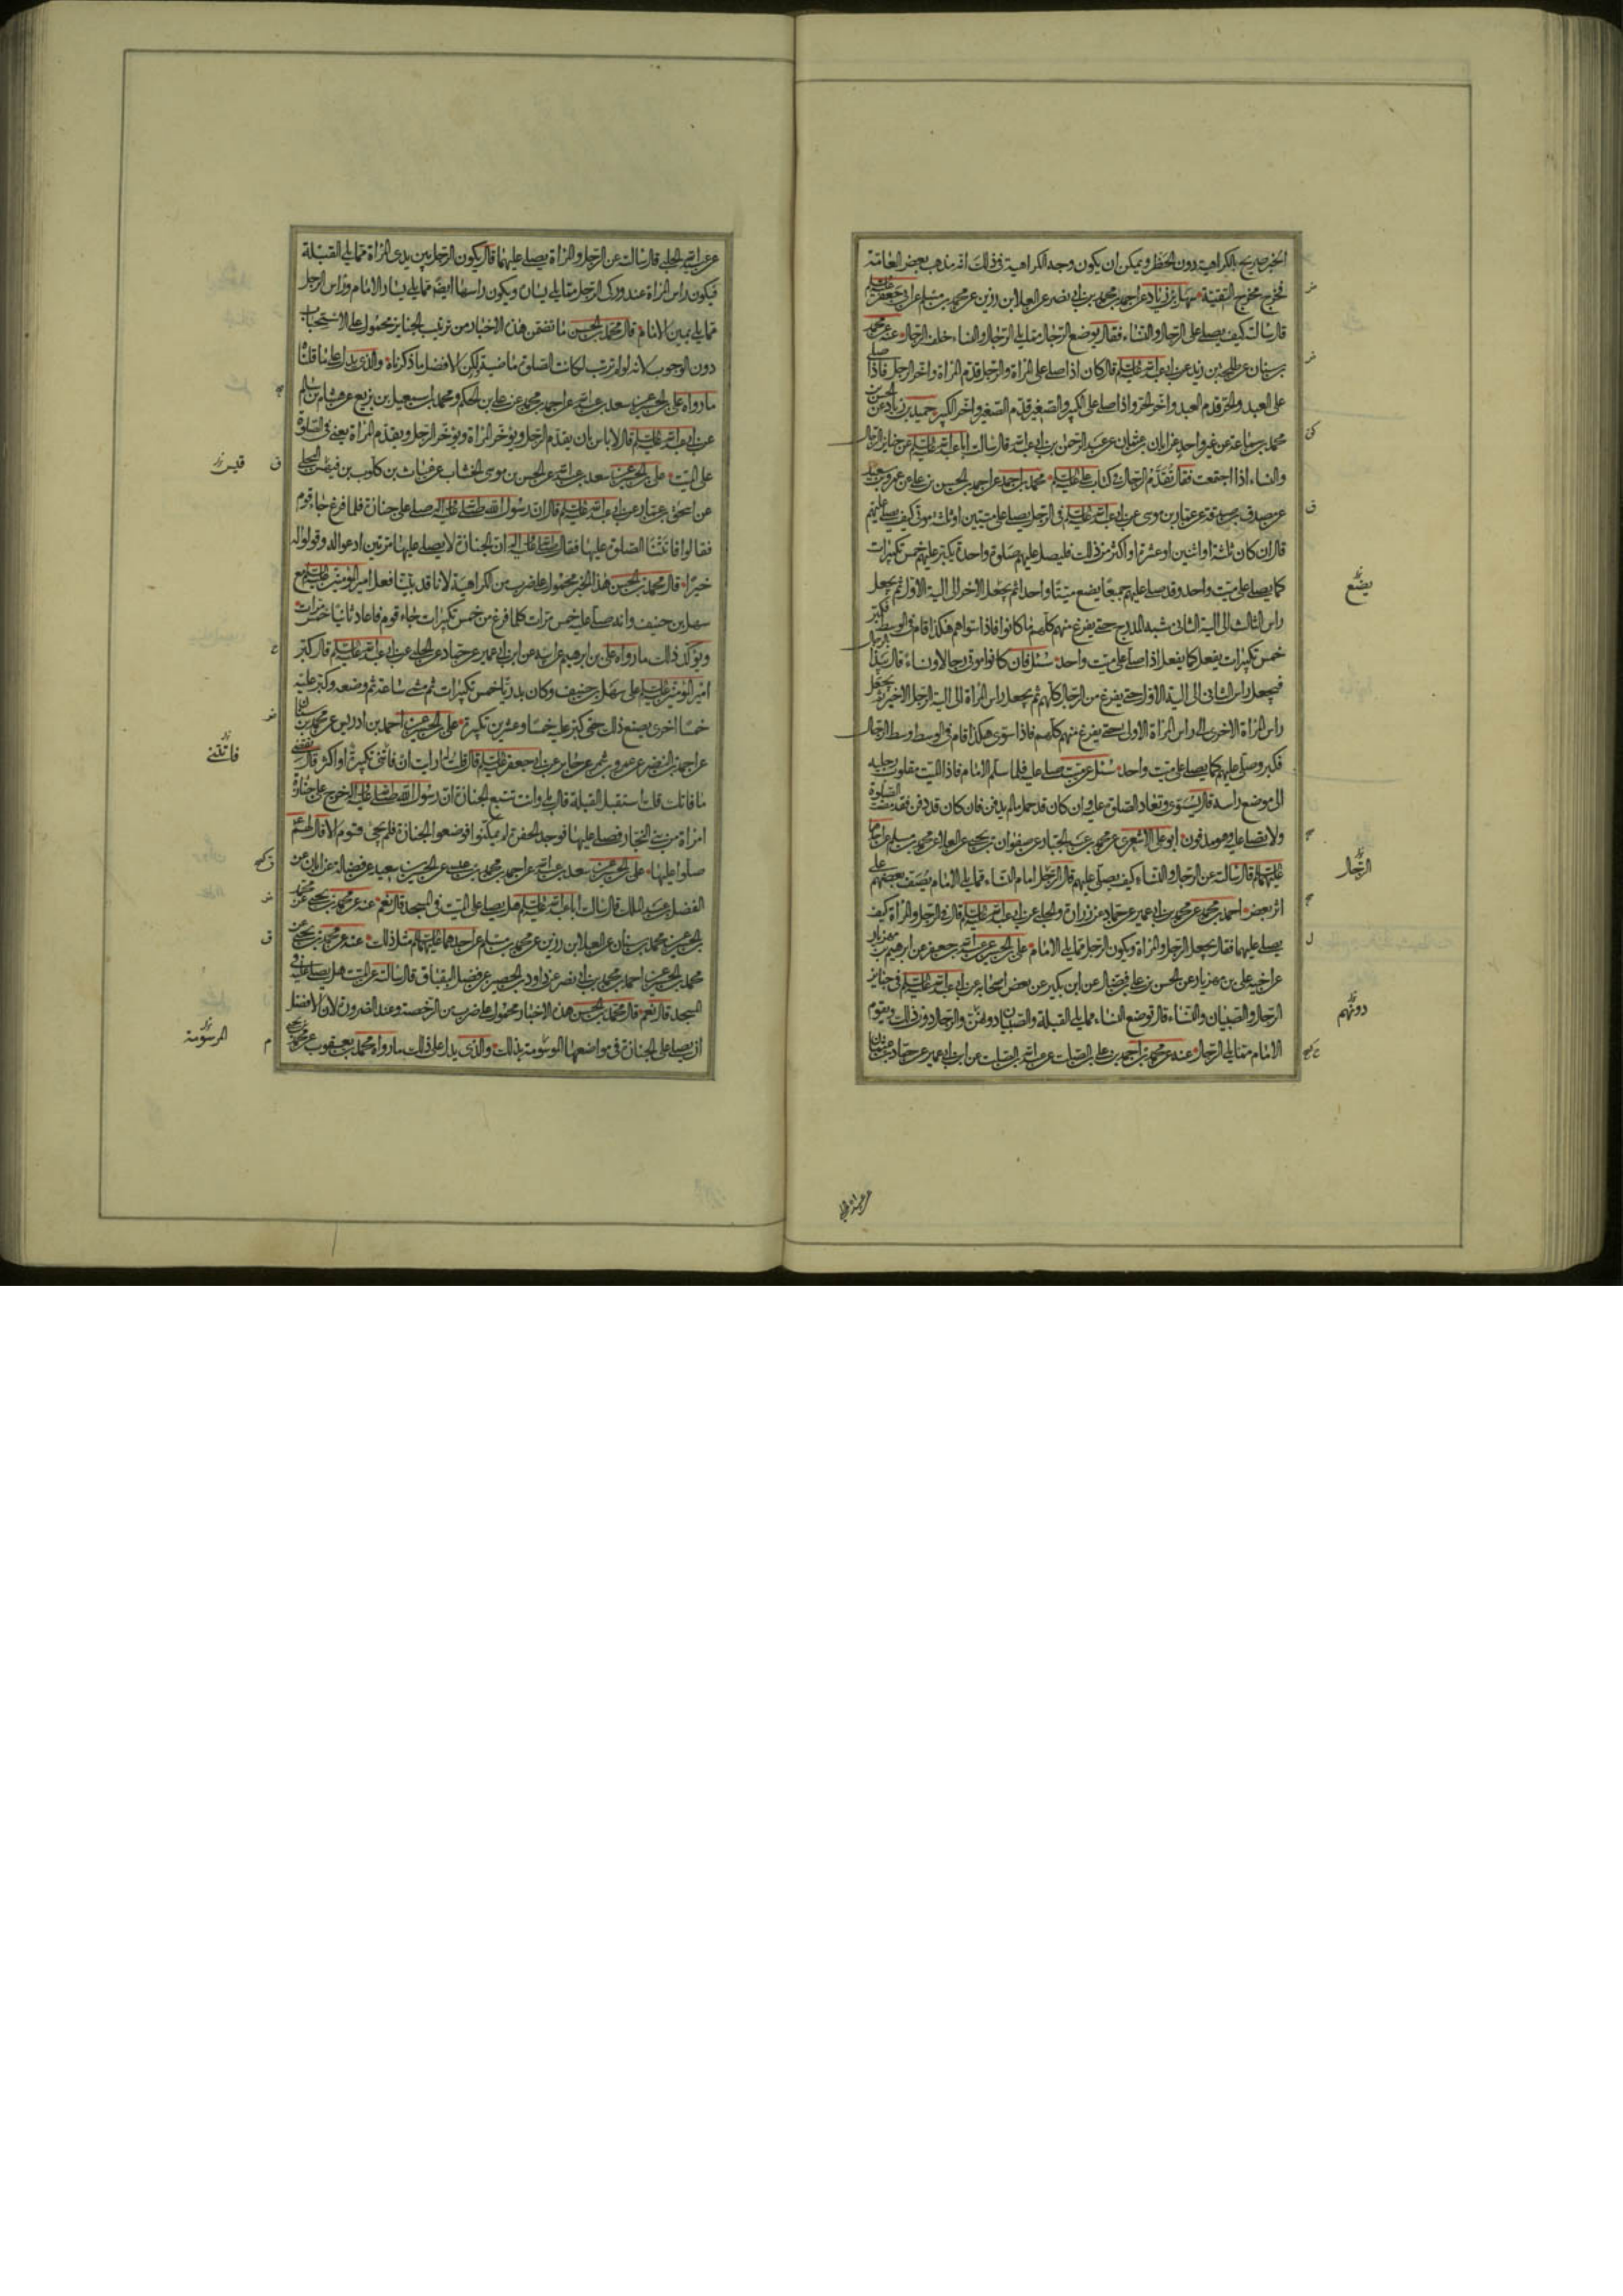 الخبر صريح بالكراهية دون الحظر ويمكن ان يكون وجه الكراهية في ذلك انه مذهب بعض العامة
فخرج مخرج التقية سهل بن زياد عن احمد بن محمد بن ابي نصر عن العلا بن رزين عن محمد بن مسلم عن ابي جعفر عليه السلم
قال سالته كيف يصلى على الرجال والنساء فقال يوضع الرجل مما يلي الرجال والنساء خلف الرجال عنه عن محمد
بن سنان عن طلحة بن زيد عن ابي عبد الله عليه السلم قال كان اذا صلى على المراة والرجل قدم المراة واخر الرجل فاذا صلى
على العبد والحر قدم العبد واخر الحر واذا صلى على الكبير والصغير قدم الصغير واخر الكبير حميد بن زياد عن الحسن بن
محمد بن سماعة عن غير واحد عن ابان بن عثمان عن عبد الرحمن بن ابي عبد الله قال سالت ابا عبد الله عليه السلم عن جنايز الرجال
والنساء اذا اجتمعت فقال تقدم الرجال في كتاب علي عليه السلم محمد بن احمد عن احمد بن الحسن بن علي عن عمرو بن سعيد
عن مصدق بن صدقة عن عمار بن موسى عن ابي عبد الله عليه السلم في الرجل يصلي على ميتين او ثلثة موتى كيف يصلي عليهم
قال ان كان ثلثة او اثنين او عشرة او اكثر من ذلك فليصل عليهم صلوة واحدة يكبر عليهم خمس تكبيرات
كما يصلي على ميت واحد وقد صلى عليهم جميعا يضع ميتا واحدا ثم يجعل الاخر الى الية الاول ثم يجعل
راس الثالث الى الية الثاني شبه المدرج حتى يفرغ منهم كلهم ما كانوا فاذا سواهم هكذا قام في الوسط فكبر
خمس تكبيرات يفعل كما يفعل اذا صلى على ميت واحد سئل فان كانوا موتى رجالا ونساء قال يبدا بالرجال
فيجعل راس الثاني الى الية الاول حتى يفرغ من الرجال كلهم ثم يجعل راس المراة الى الية الرجل الاخير ثم يجعل
راس المراة الاخرى الى راس المراة الاولى حتى يفرغ منهم كلهم فاذا سوى هكذا قام في الوسط وسط الرجال
فكبر وصلى عليهم كما يصلي على ميت واحد سئل عن ميت صلى عليه فلما سلم الامام فاذا الميت مقلوب رجليه
الى موضع راسه قال يسوى وتعاد الصلوة عليه وان كان قد حمل ما لم يدفن فان كان قد دفن فقد مضت الصلوة
ولا يصلى عليه وهو مدفون ابو علي الاشعري عن محمد بن عبد الجبار عن صفوان بن يحيى عن العلا عن محمد بن مسلم عن احدهما
عليهما السلم قال سالته عن الرجال والنساء كيف يصلى عليهم قال الرجل امام النساء مما يلي الامام يصف بعضهم على
اثر بعض احمد بن محمد عن محمد بن ابي عمير عن حماد عن زرارة والحلبي عن ابي عبد الله عليه السلم قال في الرجل والمراة كيف
يصلى عليهما فقال يجعل الرجل والمراة ويكون الرجل مما يلي الامام علي بن الحسين عن عبد الله بن جعفر عن ابرهيم بن مهزيار
عن اخيه علي بن مهزيار عن الحسن بن علي بن فضال عن ابن بكير عن بعض اصحابه عن ابي عبد الله عليه السلم في جنايز
الرجال والصبيان والنساء قال توضع النساء مما يلي القبلة والصبيان دونهن والرجال دون ذلك ويقوم
الامام مما يلي الرجال عنه عن محمد بن احمد بن علي بن الصلت عن عبد الله بن الصلت عن ابن ابي عمير عن حماد بن عثمان
يضع
الرجال
دونهم
عن عبيد الله الحلبي
عن عبيد الله الحلبي قال سالته عن الرجل والمراة يصلى عليهما قال يكون الرجل بين يدي المراة مما يلي القبلة
فيكون راس المراة عند ورك الرجل مما يلي يساره ويكون راسها ايضا مما يلي يسار الامام وراس الرجل
مما يلي يمين الامام قال محمد بن الحسن ما تضمن هذه الاخبار من ترتيب الجنايز محمول على الاستحباب
دون الوجوب لانه لو لم ترتب لكانت الصلوة ماضية لكن الافضل ما ذكرناه والذي يدل على ما قلناه
ما رواه علي بن الحسين عن سعد بن عبد الله عن احمد بن محمد عن علي بن الحكم ومحمد بن اسمعيل بن بزيع عن هشام بن سالم
عن ابي عبد الله عليه السلم قال لا باس بان يقدم الرجل ويؤخر المراة ويؤخر الرجل ويقدم المراة يعني في الصلوة
على الميت علي بن الحسين عن سعد بن عبد الله عن الحسن بن موسى الخشاب عن غياث بن كلوب بن فيهس البجلي
عن اسحق بن عمار عن ابي عبد الله عليه السلم قال ان رسول الله صلى الله عليه واله صلى على جنازة فلما فرغ جاء قوم
فقالوا فاتتنا الصلوة عليها فقال صلى الله عليه واله ان الجنازة لا يصلى عليها مرتين ادعوا له وقولوا له
خيرا قال محمد بن الحسن هذا الخبر محمول على ضرب من الكراهية لانا قد بينا فعل امير المؤمنين عليه السلم مع
سهل بن حنيف وانه صلى عليه خمس مرات كلما فرغ من خمس تكبيرات جاء قوم فاعاد ثانيا خمس مرات
ويؤكد ذلك ما رواه علي بن ابرهيم عن ابيه عن ابن ابي عمير عن حماد عن الحلبي عن ابي عبد الله عليه السلم قال كبر
امير المؤمنين عليه السلم على سهل بن حنيف وكان بدريا خمس تكبيرات ثم مشى ساعة ثم وضعه وكبر عليه
خمسا اخرى يصنع ذلك حتى كبر عليه خمسا وعشرين تكبيرة علي بن الحسين عن احمد بن ادريس عن محمد بن سنان
عن احمد بن النضر عن عمرو بن شمر عن جابر عن ابي جعفر عليه السلم قال قلت له ارايت ان فاتتني تكبيرة او اكثر قال تقضي
ما فاتك قلت استقبل القبلة قال بلى وانت تتبع الجنازة ان رسول الله صلى الله عليه واله خرج على جنازة
امراة من بني النجار فصلى عليها فوجد الحفرة لم يمكنوا فوضعوا الجنازة فلم يجئ قوم الا قال لهم
صلوا عليها علي بن الحسين عن سعد بن عبد الله عن احمد بن محمد بن عيسى عن الحسين بن سعيد عن فضالة عن ابان عن
الفضل بن عبد الملك قال سالت ابا عبد الله عليه السلم هل يصلى على الميت في المسجد قال نعم عنه عن محمد بن يحيى عن محمد
بن الحسين عن محمد بن سنان عن العلا بن رزين عن محمد بن مسلم عن احدهما عليهما السلم مثل ذلك عنه عن محمد بن يحيى عن
محمد بن الحسين عن احمد بن محمد بن ابي نصر عن داود بن الحصين عن فضل البقباق قال سالته عن الميت هل يصلى عليه في
المسجد قال نعم قال محمد بن الحسن هذه الاخبار محمولة على ضرب من الرخصة وعند الضرورة لان الافضل
ان يصلى على الجنازة في مواضعها الموسومة بذلك والذي يدل على ذلك ما رواه محمد بن يعقوب عن محمد بن يحيى
قيس
فاتتني
المرسومة